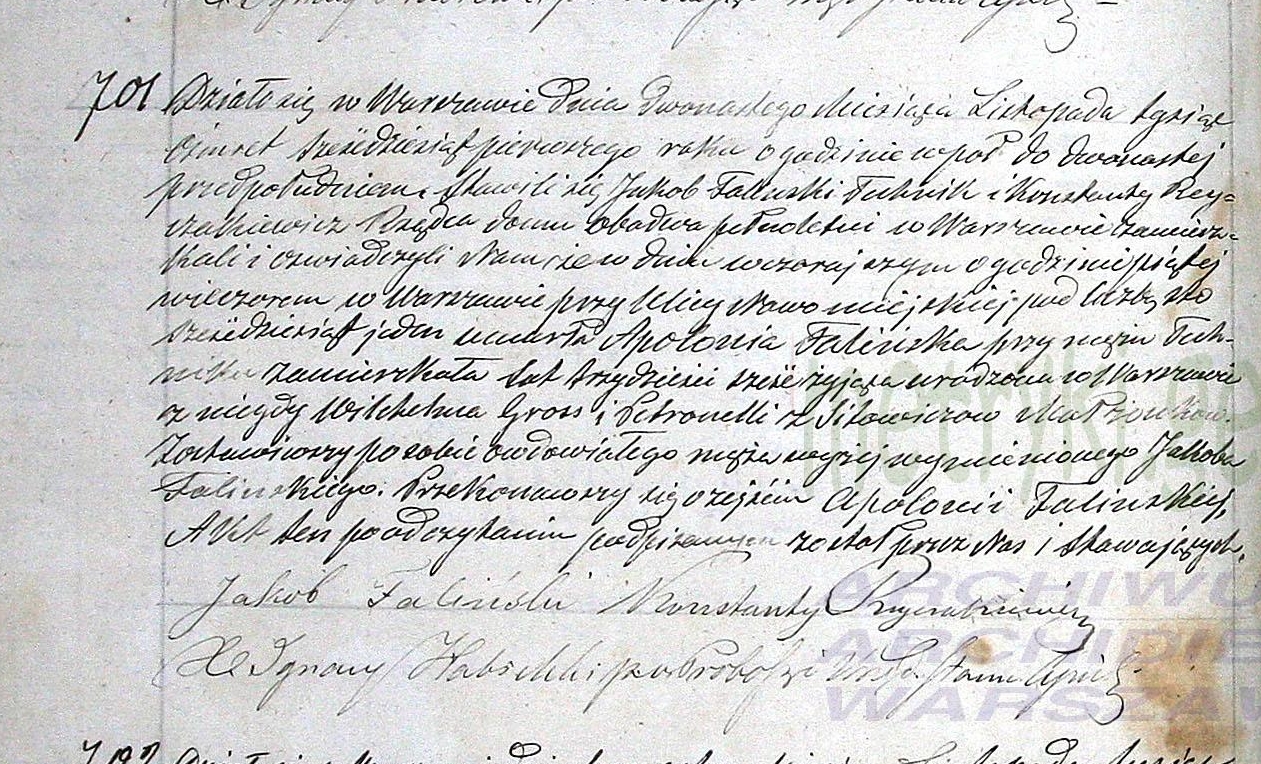 701 Działo się w Warszawie dnia dwonastego Miesiąca Listopada tysiąc
Ośmset sześćdziesiąt pierwszego roku o godzinie wpół do dwonastej
przedpołudniem. Stawili się Jakob Faliński Technik i Konstanty Rey=
czakiewicz Rządca domu obadwa pełnoletni w Warszawie zamiesz=
kali i oświadczyli Nam że w dniu wczorajszym o godzinie piątej
wieczorem w Warszawie przy Ulicy Nawo miejskiej pod liczbą sto
sześćdziesiąt jeden umarła Apolonia Falińska przy mężu Tech-
niku zamieszkała lat trzydzieści sześć żyjąca urodzona w Warszawie
z niegdy Wilchelma Gross i Petronelli z Sitowiczow Małżonków.
Zostawiwszy po sobie owdowiałego męża wyżej wymienionego Jakoba
Falinskiego. Przekonawszy się o zejściu Apolonii Falinskiej,
Akt ten po odczytaniu podpisanym został przez Nas i Stawających.
Jakob Faliński Konstanty
X Ignacy
702
ARCHIWU
ARCHIDIE
WARSZAW
metryki.ge